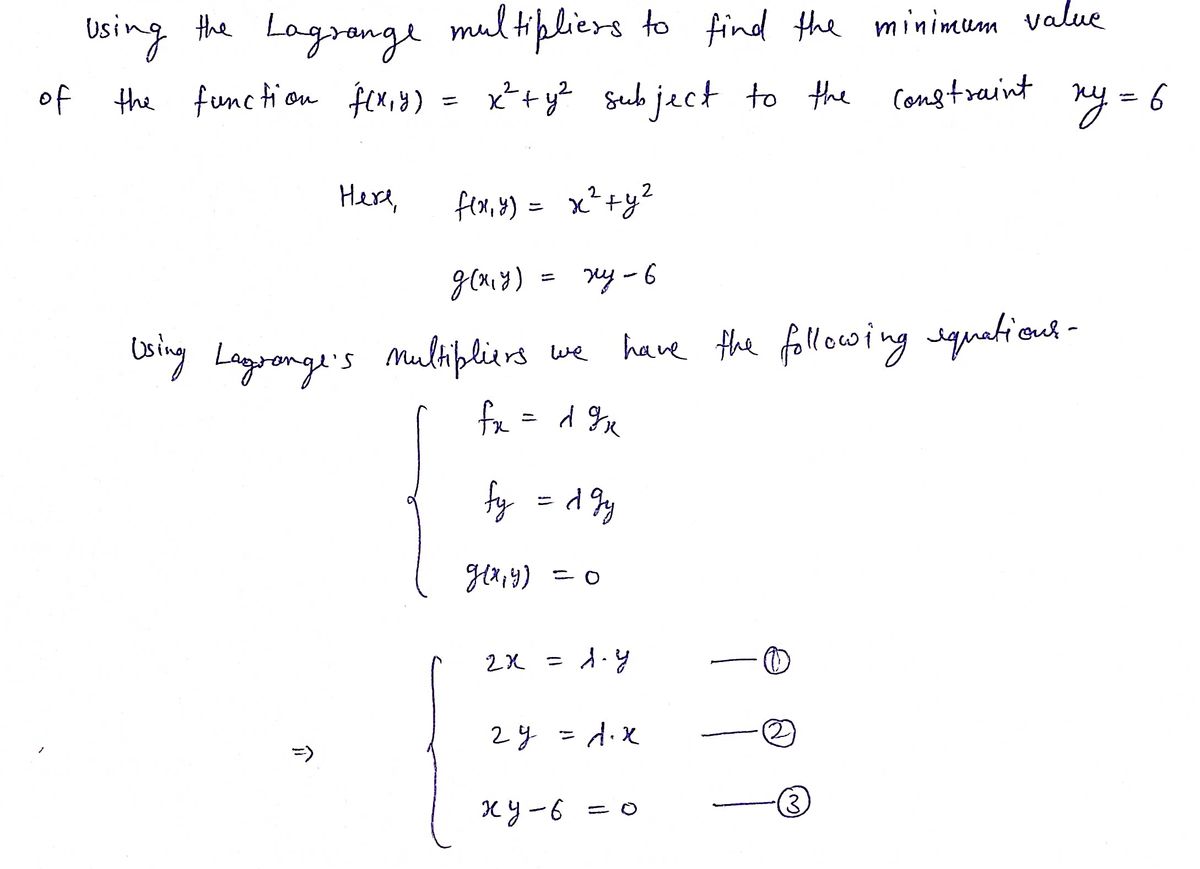 Using the Lagrange multipliers to find the minimum value
of the function f(x,y) = x²+y² subject to the constraint xy = 6
Here, f(x,y) = x²+y²
g(x,y) = xy-6
Using Lagrange's multipliers we have the following equations-
fx = λ gx
fy = λ gy
g(x,y) = 0
2x = λ·y —①
2y = λ·x —②
⇒
xy-6 = 0 —③